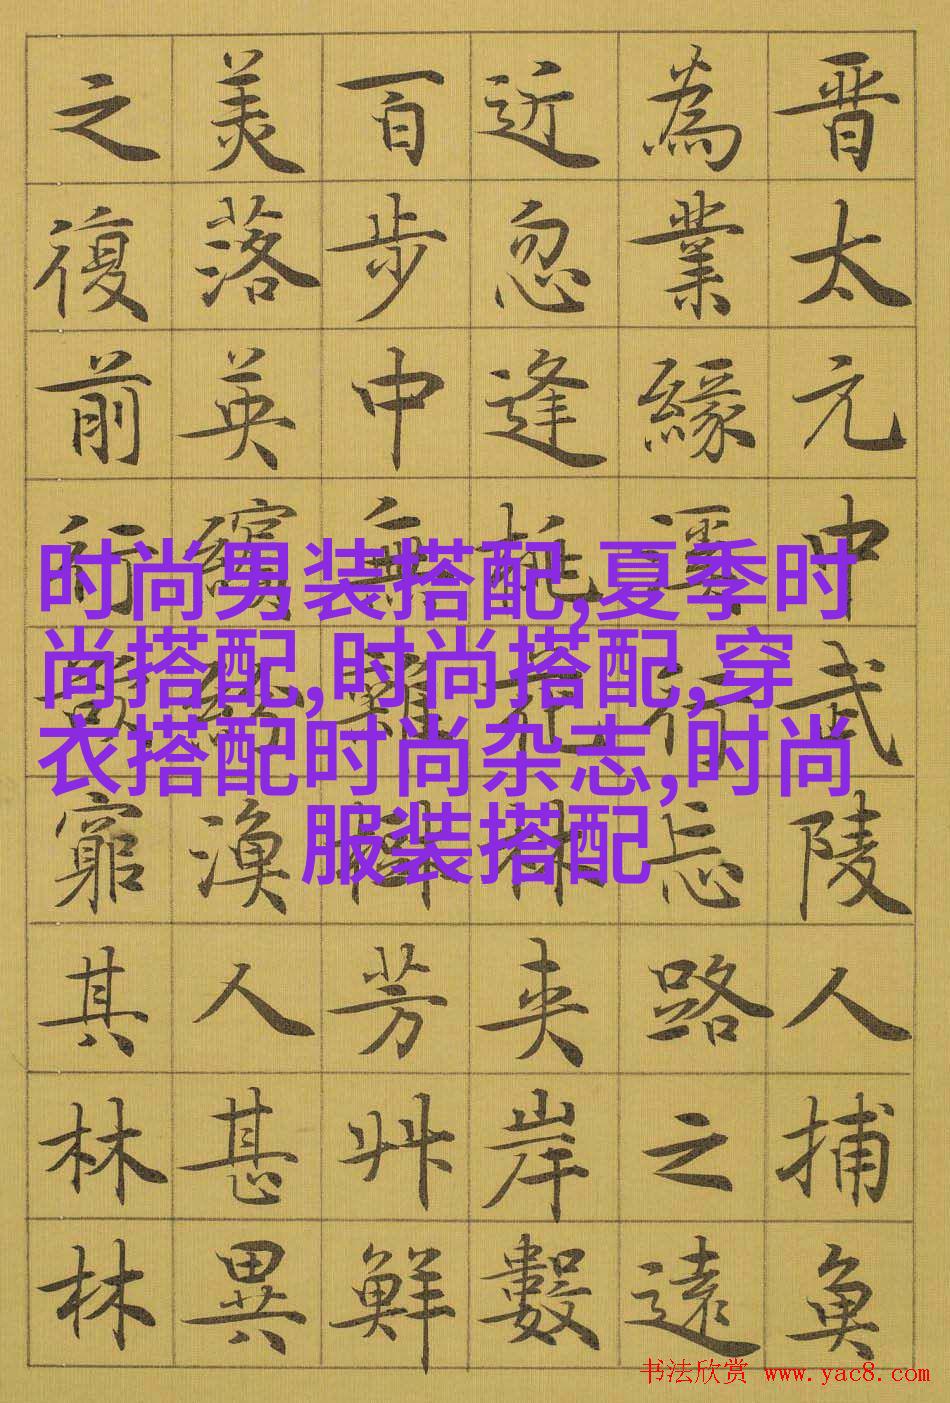 晋太元中武陵人捕魚
為業緣溪行忘路之遠
近忽逢桃花林夾岸數
百步中無雜樹芳艸鮮
美落英繽紛漁人甚異
之復前行欲窮其林林
时尚男装搭配,夏季时
尚搭配,时尚搭配,穿
衣搭配时尚杂志,时尚
服装搭配
书法欣赏 www.yac8.com